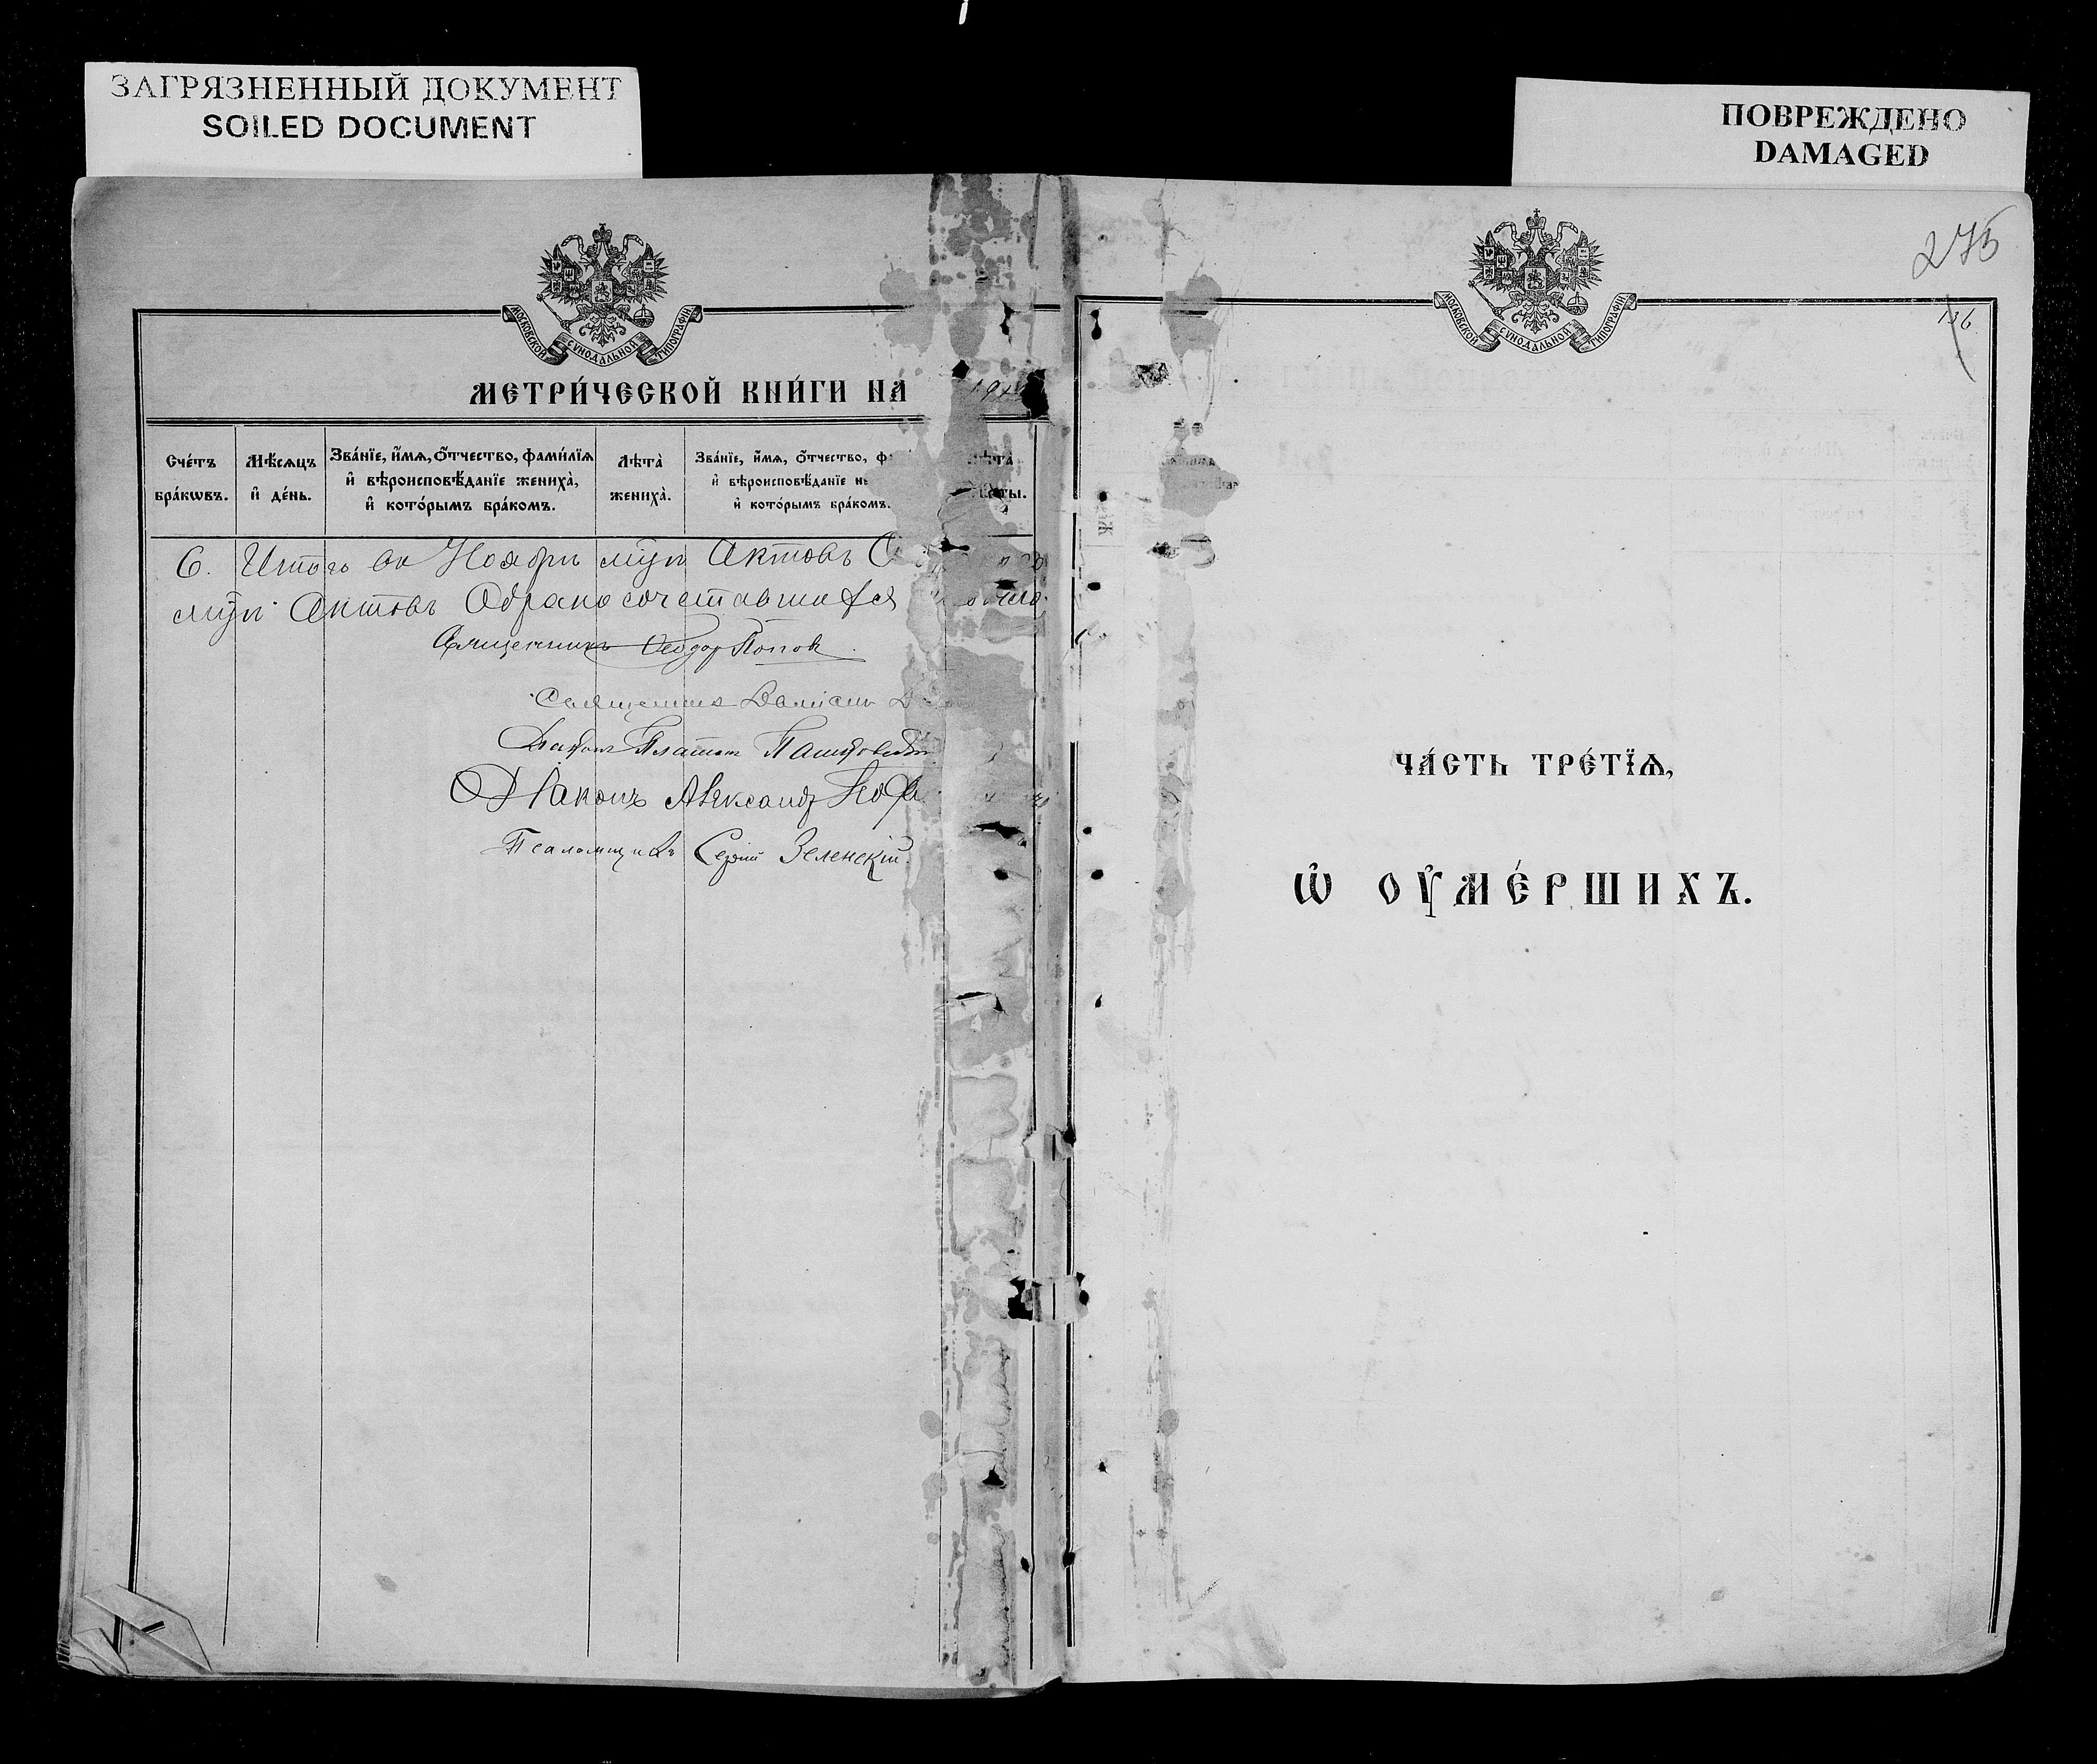 ЗАГРЯЗНЕННЫЙ ДОКУМЕНТ
SOILED DOCUMENT
ПОВРЕЖДЕНО
DAMAGED
МОСКОВСКОЙ СѴНОДАЛЬНОЙ ТИПОГРАФІИ
МЕТРИ́ЧЕСКОЙ КНИ́ГИ НА
Сче́тъ бра́кѡвъ.
Мѣ́сѧцъ и҆ де́нь.
Зва́нїе, и҆́мѧ, ѻ҆́тчество, фами́лїѧ и҆ вѣроисповѣ́данїе жениха̀, и҆ кото́рымъ бра́комъ.
Лѣта̀ жениха̀.
Зва́нїе, и҆́мѧ, ѻ҆́тчество, и҆ вѣроисповѣ́данїе и҆ кото́рымъ бра́комъ.
Лѣта̀
6. Итого въ Ноябрѣ муж Актовъ
Актовъ О бракосочетавшихся
Священникъ Ѳеодоръ Поповъ
Священникъ Даміанъ
Діаконъ Платонъ
Діаконъ Александръ
Псаломщикъ Сергій Зеленскій.
МОСКОВСКОЙ СѴНОДАЛЬНОЙ ТИПОГРАФІИ
275
136
ЧА́СТЬ ТРЕ́ТЇѦ,
Ѡ҆ ОУ҆МЕ́РШИХЪ.